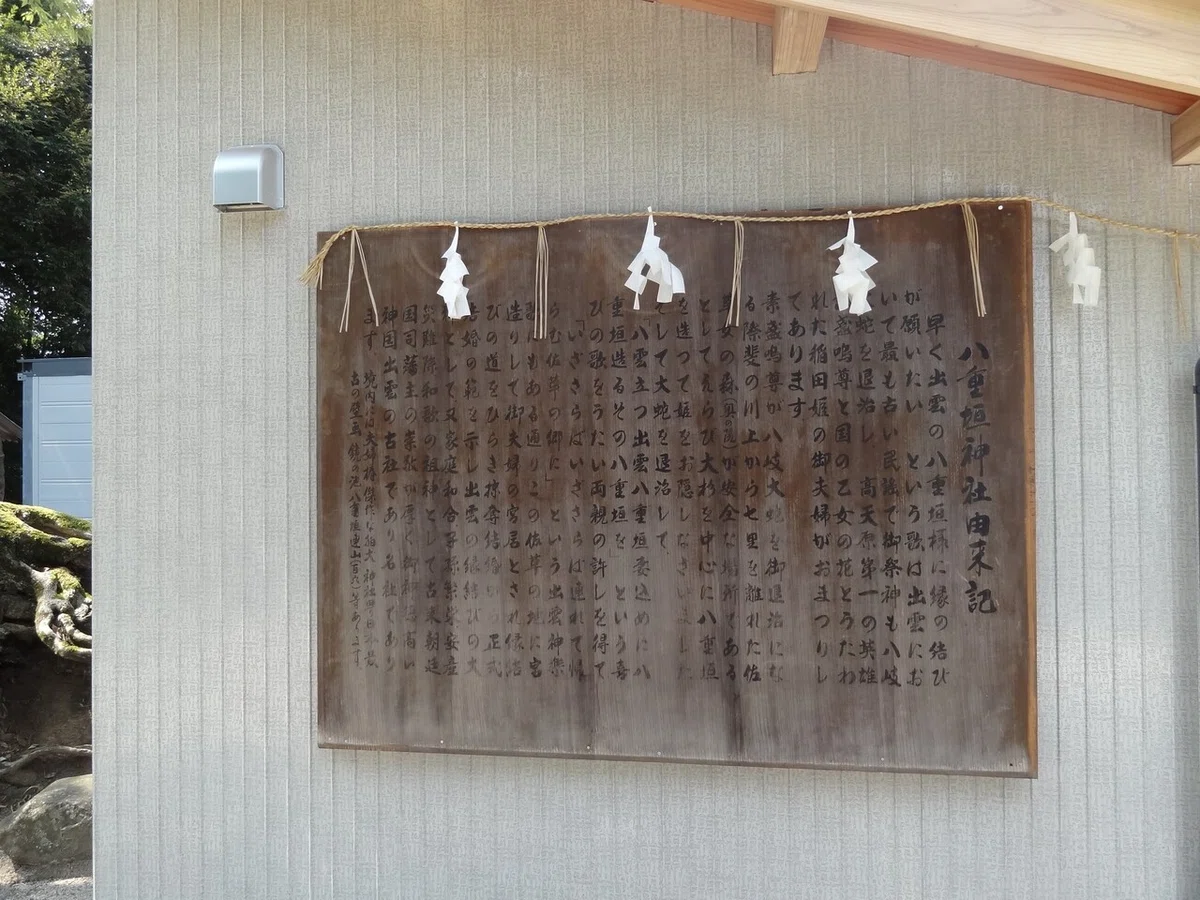 八重垣神社由来記
早く出雲の八重垣様に縁の結び
が願いたい という歌は出雲にお
いて最も古い民謡で御祭神も八岐
大蛇を退治し 高天原第一の英雄
素盞嗚尊と国の乙女の花とうたわ
れた稲田姫の御夫婦がおまつりし
てあります
素盞嗚尊が八岐大蛇を御退治にな
る際斐の川上から七里を離れた佐
久女の森(奥の院)が安全な場所である
としてえらび大杉を中心に八重垣
を造って姫をお隠しなさいました
そして大蛇を退治して
「八雲立つ出雲八重垣妻込めに八
重垣造るその八重垣を」という喜
びの歌をうたい両親の許しを得て
「いざさらばいざさらば連れて帰
らむ佐草の郷に」という出雲神楽
歌にもある通りこの佐草の地に宮
造りして御夫婦の宮居とされ縁結
びの道をひらき掠奪結婚から正式
結婚の範を示し出雲の縁結びの大
神として又家庭和合子孫繁栄安産
災難除和歌の祖神として古来朝廷
国司藩主の崇敬が厚く御神徳高い
神国出雲の古社であり名社であり
ます
境内には夫婦椿 狛犬 神社 日本最
古の壁画 鏡の池 八重垣連山 等あります